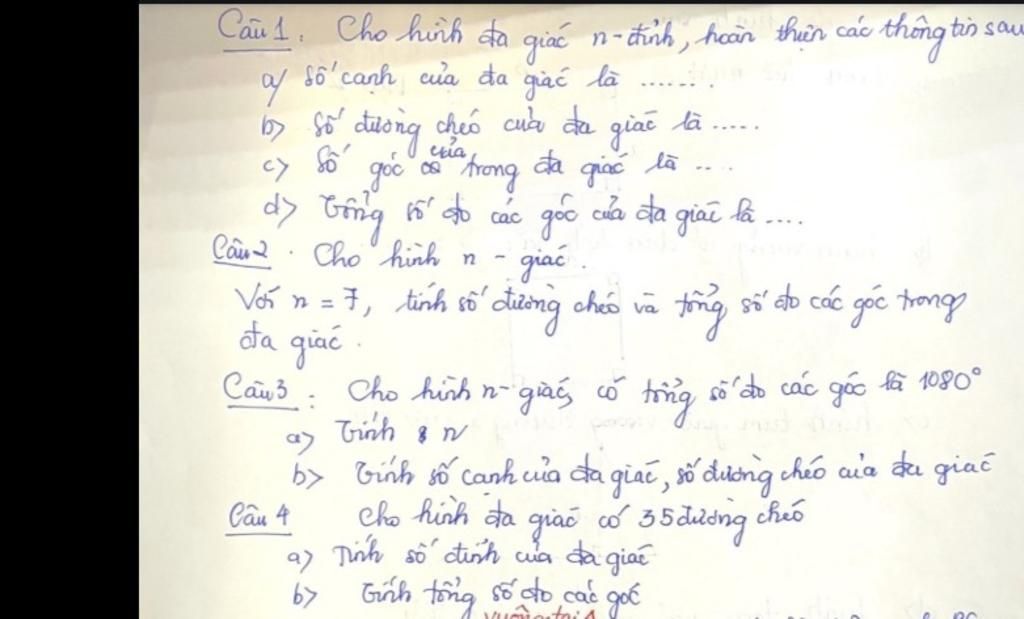 Câu 1: Cho hình đa giác n-đỉnh, hoàn thiện các thông tin sau
a/ Số cạnh của đa giác là .......
b> Số đường chéo của đa giác là .....
c> Số góc của trong đa giác là ....
d> Tổng số đo các góc của đa giác là ....
Câu 2. Cho hình n - giác.
Với n = 7, tính số đường chéo và tổng số đo các góc trong
đa giác.
Câu 3: Cho hình n-giác, có tổng số đo các góc là 1080°
a> Tính n
b> Tính số cạnh của đa giác, số đường chéo của đa giác
Câu 4 Cho hình đa giác có 35 đường chéo
a> Tính số đỉnh của đa giác
b> Tính tổng số đo các góc
vuông tại A